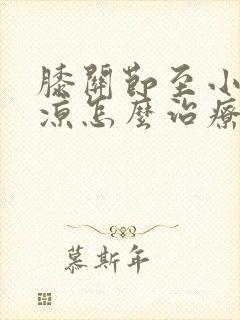 膝關節至小
涼怎麼治療
慕斯年